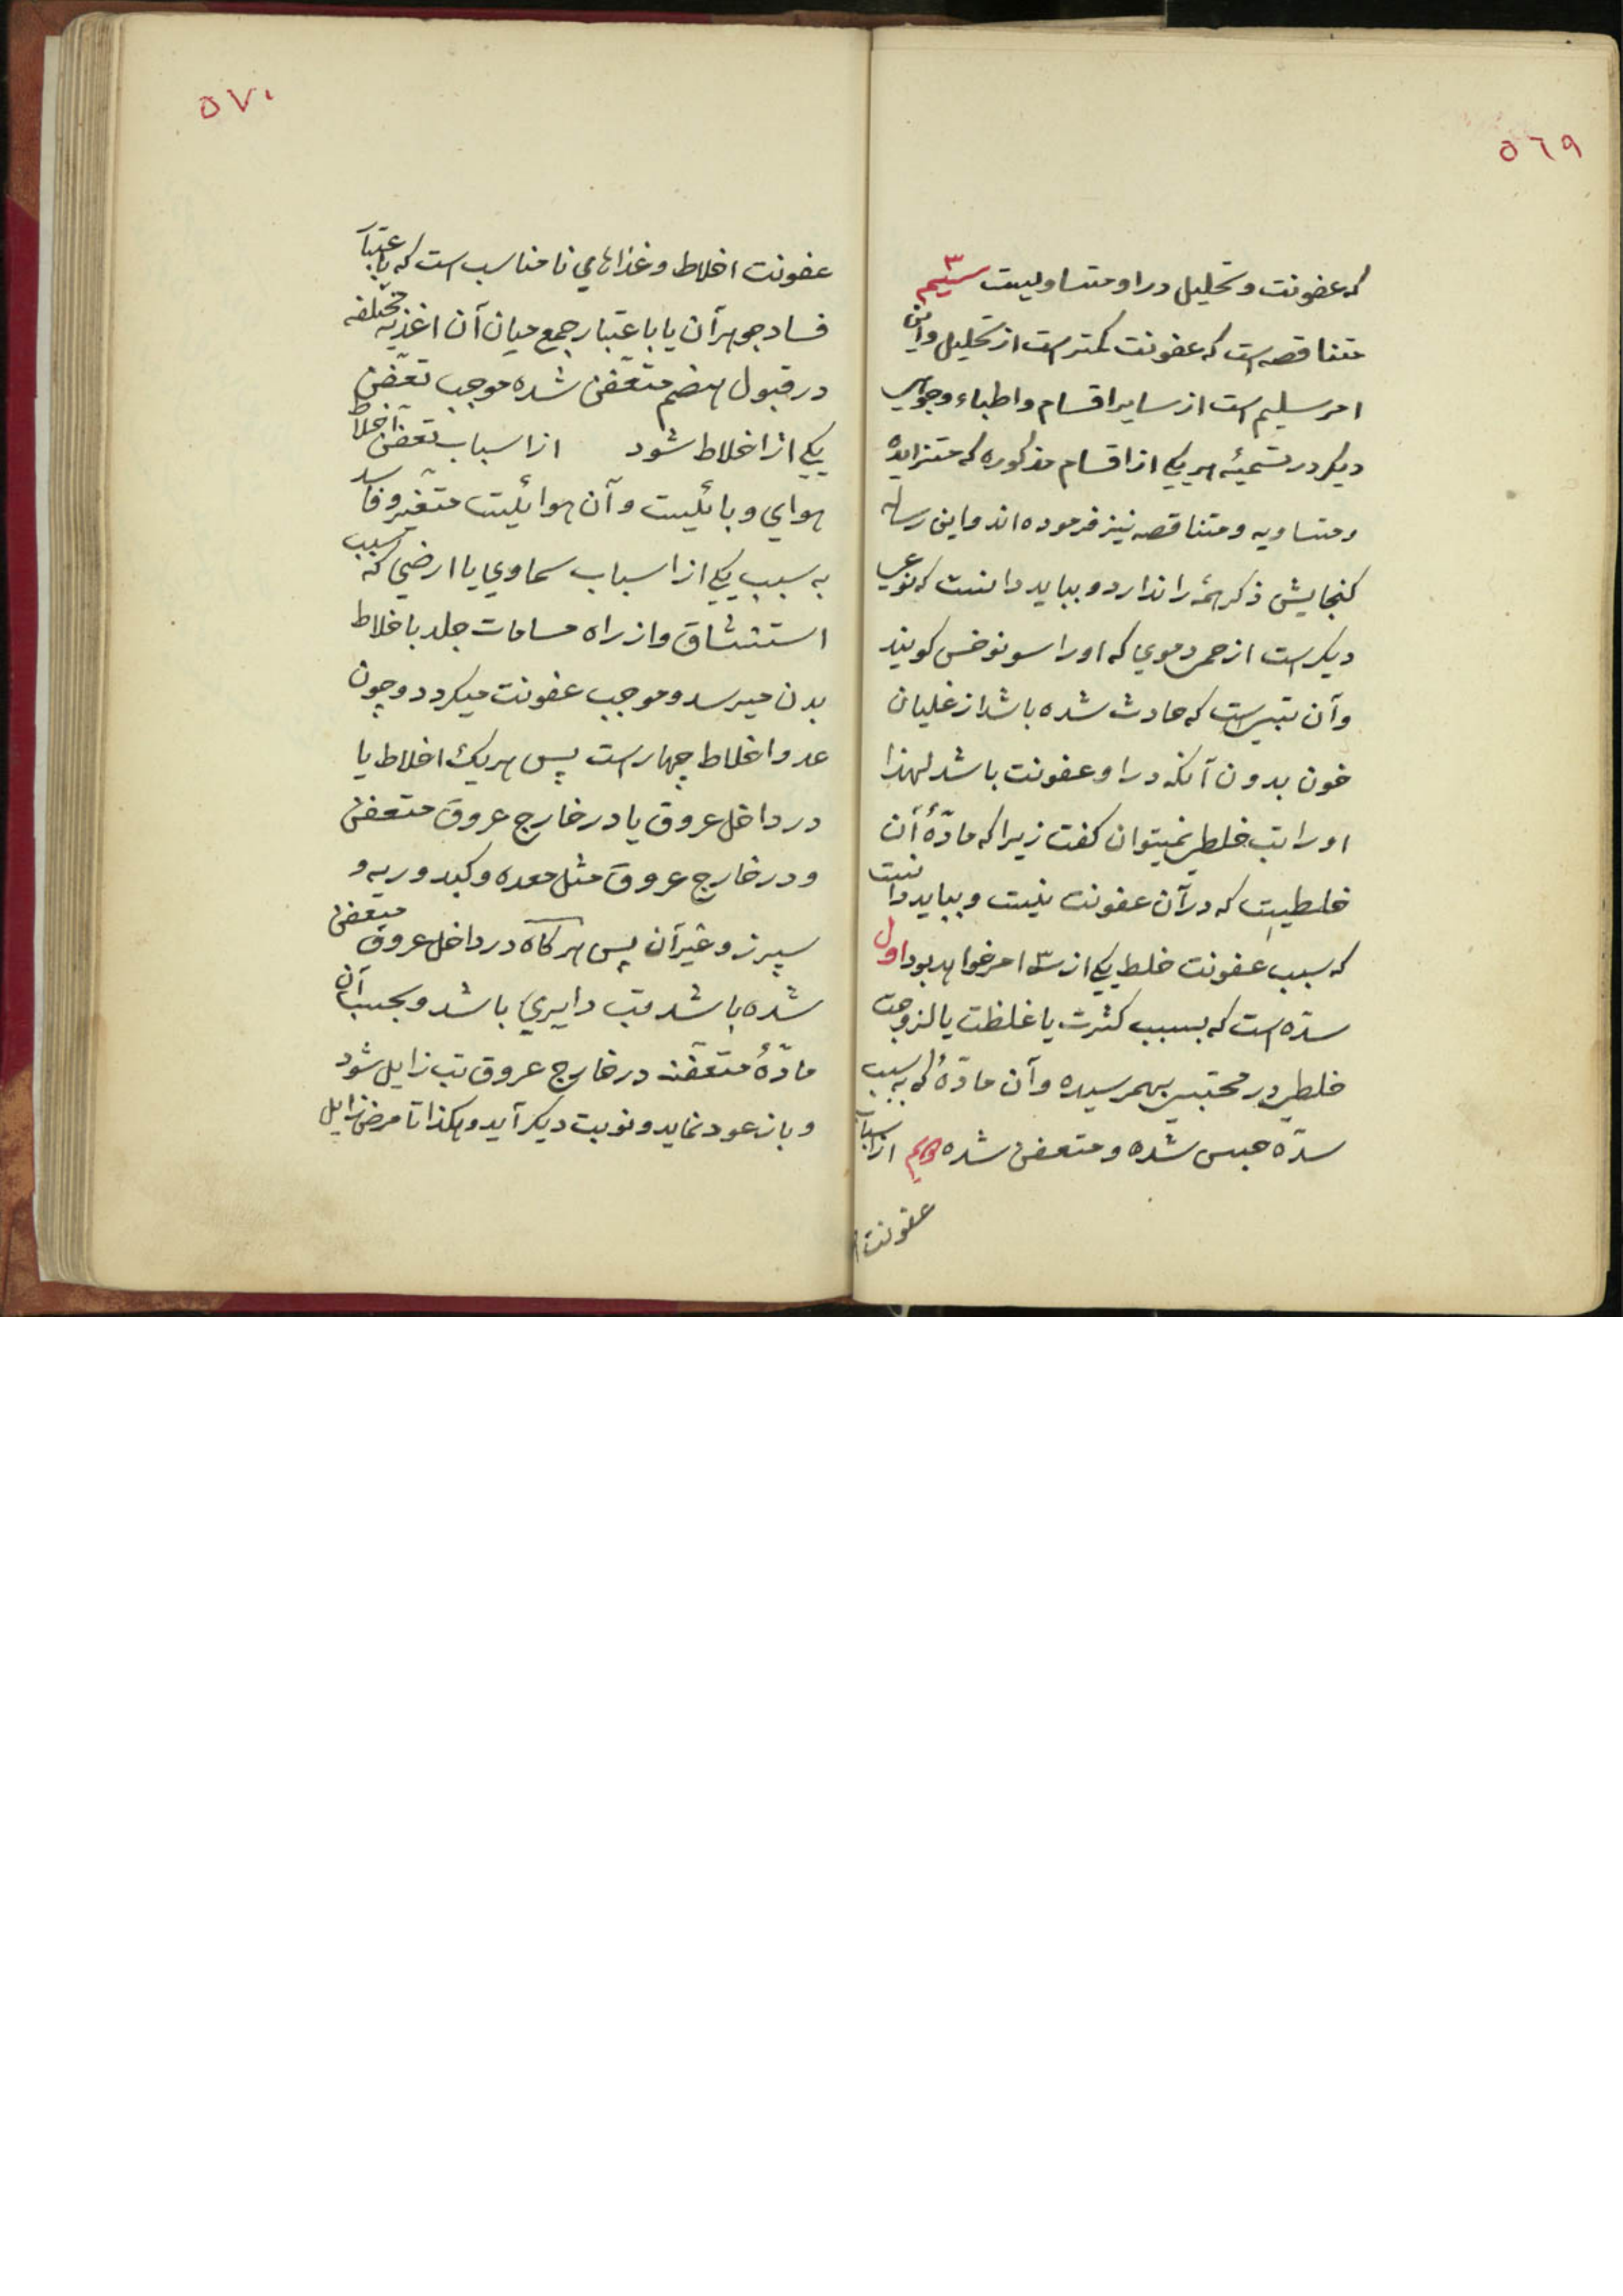 ٥٦٩
که عفونت و تحلیل در او متساویست سیم ۳
متناقصه است که عفونت کمتر است از تحلیل و این
امر سلیم است از سایر اقسام و اطباء وجوهی
دیگر در تسمیهٔ هر یکی از اقسام مذکوره که متزایده
و متساویه و متناقصه نیز فرموده اند و این رساله
کنجایش ذکر همهٔ را ندارد و بباید دانست که نوعی
دیکر است از حمی دموی که او را سونوخس کویند
و آن تبی است که حادث شده باشد از غلیان
خون بدون آنکه در او عفونت باشد لهذا
او را تب خلطی نمیتوان کفت زیرا که مادّهٔ آن
خلطیست که در آن عفونت نیست و بباید دانست
که سبب عفونت خلط یکی از سه ۳ امر خواهد بود اول
سدّه است که بسبب کثرت یا غلظت یا لزوجت
خلطی در محتبس بهمرسیده و آن مادّهٔ که به سبب
سدّه حبس شده و متعفن شده دویم از اسباب
عفونت
٥٧٠
عفونت اخلاط و غذاهای نامناسب است که باعتبار
فساد جوهر آن یا باعتبار جمع میان آن اغذیه مختلفه
در قبول هضم متعفن شده موجب تعفن
یکی از اخلاط شود از اسباب تعفن اخلاط
هوای وبائیست و آن هوائیست متغیر و فاسد
به سبب یکی از اسباب سماوی یا ارضی که بسبب
استنشاق و از راه مسامات جلد باخلاط
بدن میرسد و موجب عفونت میکردد و چون
عدد اخلاط چهار است پس هر یک اخلاط یا
در داخل عروق یا در خارج عروق متعفن
و در خارج عروق مثل معده و کبد و ریه و
سپرز و غیر آن پس هرکاه در داخل عروق متعفن
شده باشد تب دایری باشد و بحسب آن
مادّهٔ متعفنه در خارج عروق تب زایل شود
و باز عود نماید و نوبت دیکر آید و هکذا تا مرض زایل